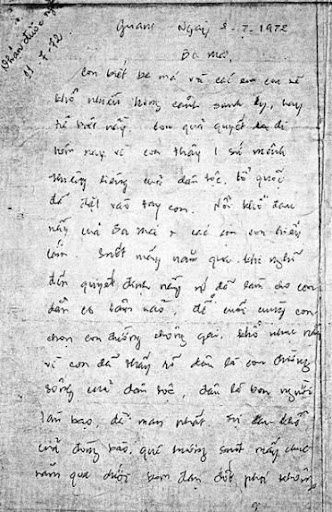 Nhận được ngày
11-7-72
Quảng Ngãy 8-7-1972
Ba má,
Con biết ba má và các em con sẽ
khổ nhiều trong cảnh sinh ly, hay
tử biệt nầy. Con quả quyết ra đi
hôm nay vì con thấy 1 sứ mệnh
thiêng liêng của dân tộc, tổ quốc
đã đặt vào tay con. Nỗi khổ đau
nầy của Ba Má và các em con hiểu
lắm. Suốt mấy năm qua khi nghĩ
đến quyết định nầy nó đã làm cho con
dằn co lắm, để cuối cùng con
chọn con đường chông gai, khổ nhục nầy
vì con đã thấy rõ đâu là con đường
sống của dân tộc, đâu là bọn người
tàn bạo, dã man nhất. Sự đau khổ
của đồng bào, quê hương suốt mấy chục
năm qua dưới bom đạn đốt phá không